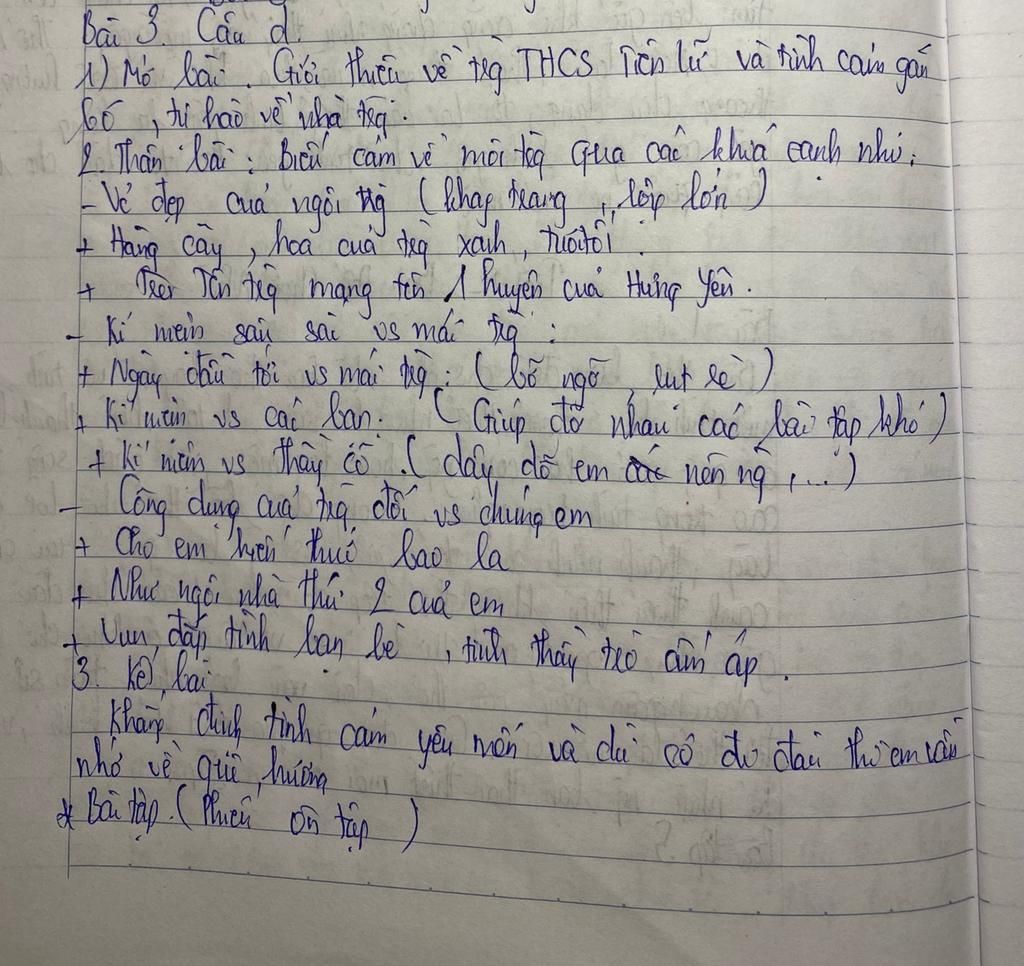 Bài 3. Câu d.
1) Mở bài. Giới thiệu về trg THCS Tiên Lữ và tình cảm gắn
bó, tự hào về nhà trg.
2. Thân bài: Biểu cảm về mái trg qua các khía cạnh như:
- Vẻ đẹp của ngôi trg (khag trang, lớp lớn)
+ Hàng cây, hoa của trg xanh, tươi tốt.
+ Tên trg mạng tên 1 huyện của Hưng Yên.
- Kỉ niệm sâu sắc vs mái trg:
+ Ngày đầu tới vs mái trg: (bỡ ngỡ, rụt rè)
+ Kỉ niệm vs các bạn. (Giúp đỡ nhau các bài tập khó)
+ Kỉ niệm vs thầy cô. (dạy dỗ em nên ng, ...)
- Công dụng của trg đối vs chúng em
+ Cho em kiến thức bao la
+ Như ngôi nhà thứ 2 của em
+ Vun đắp tình bạn bè, tình thầy trò ấm áp.
3. Kết bài
Khẳng định tình cảm yêu mến và dù có đi đâu thì em vẫn
nhớ về quê hương
* Bài tập. (Phiếu ôn tập)